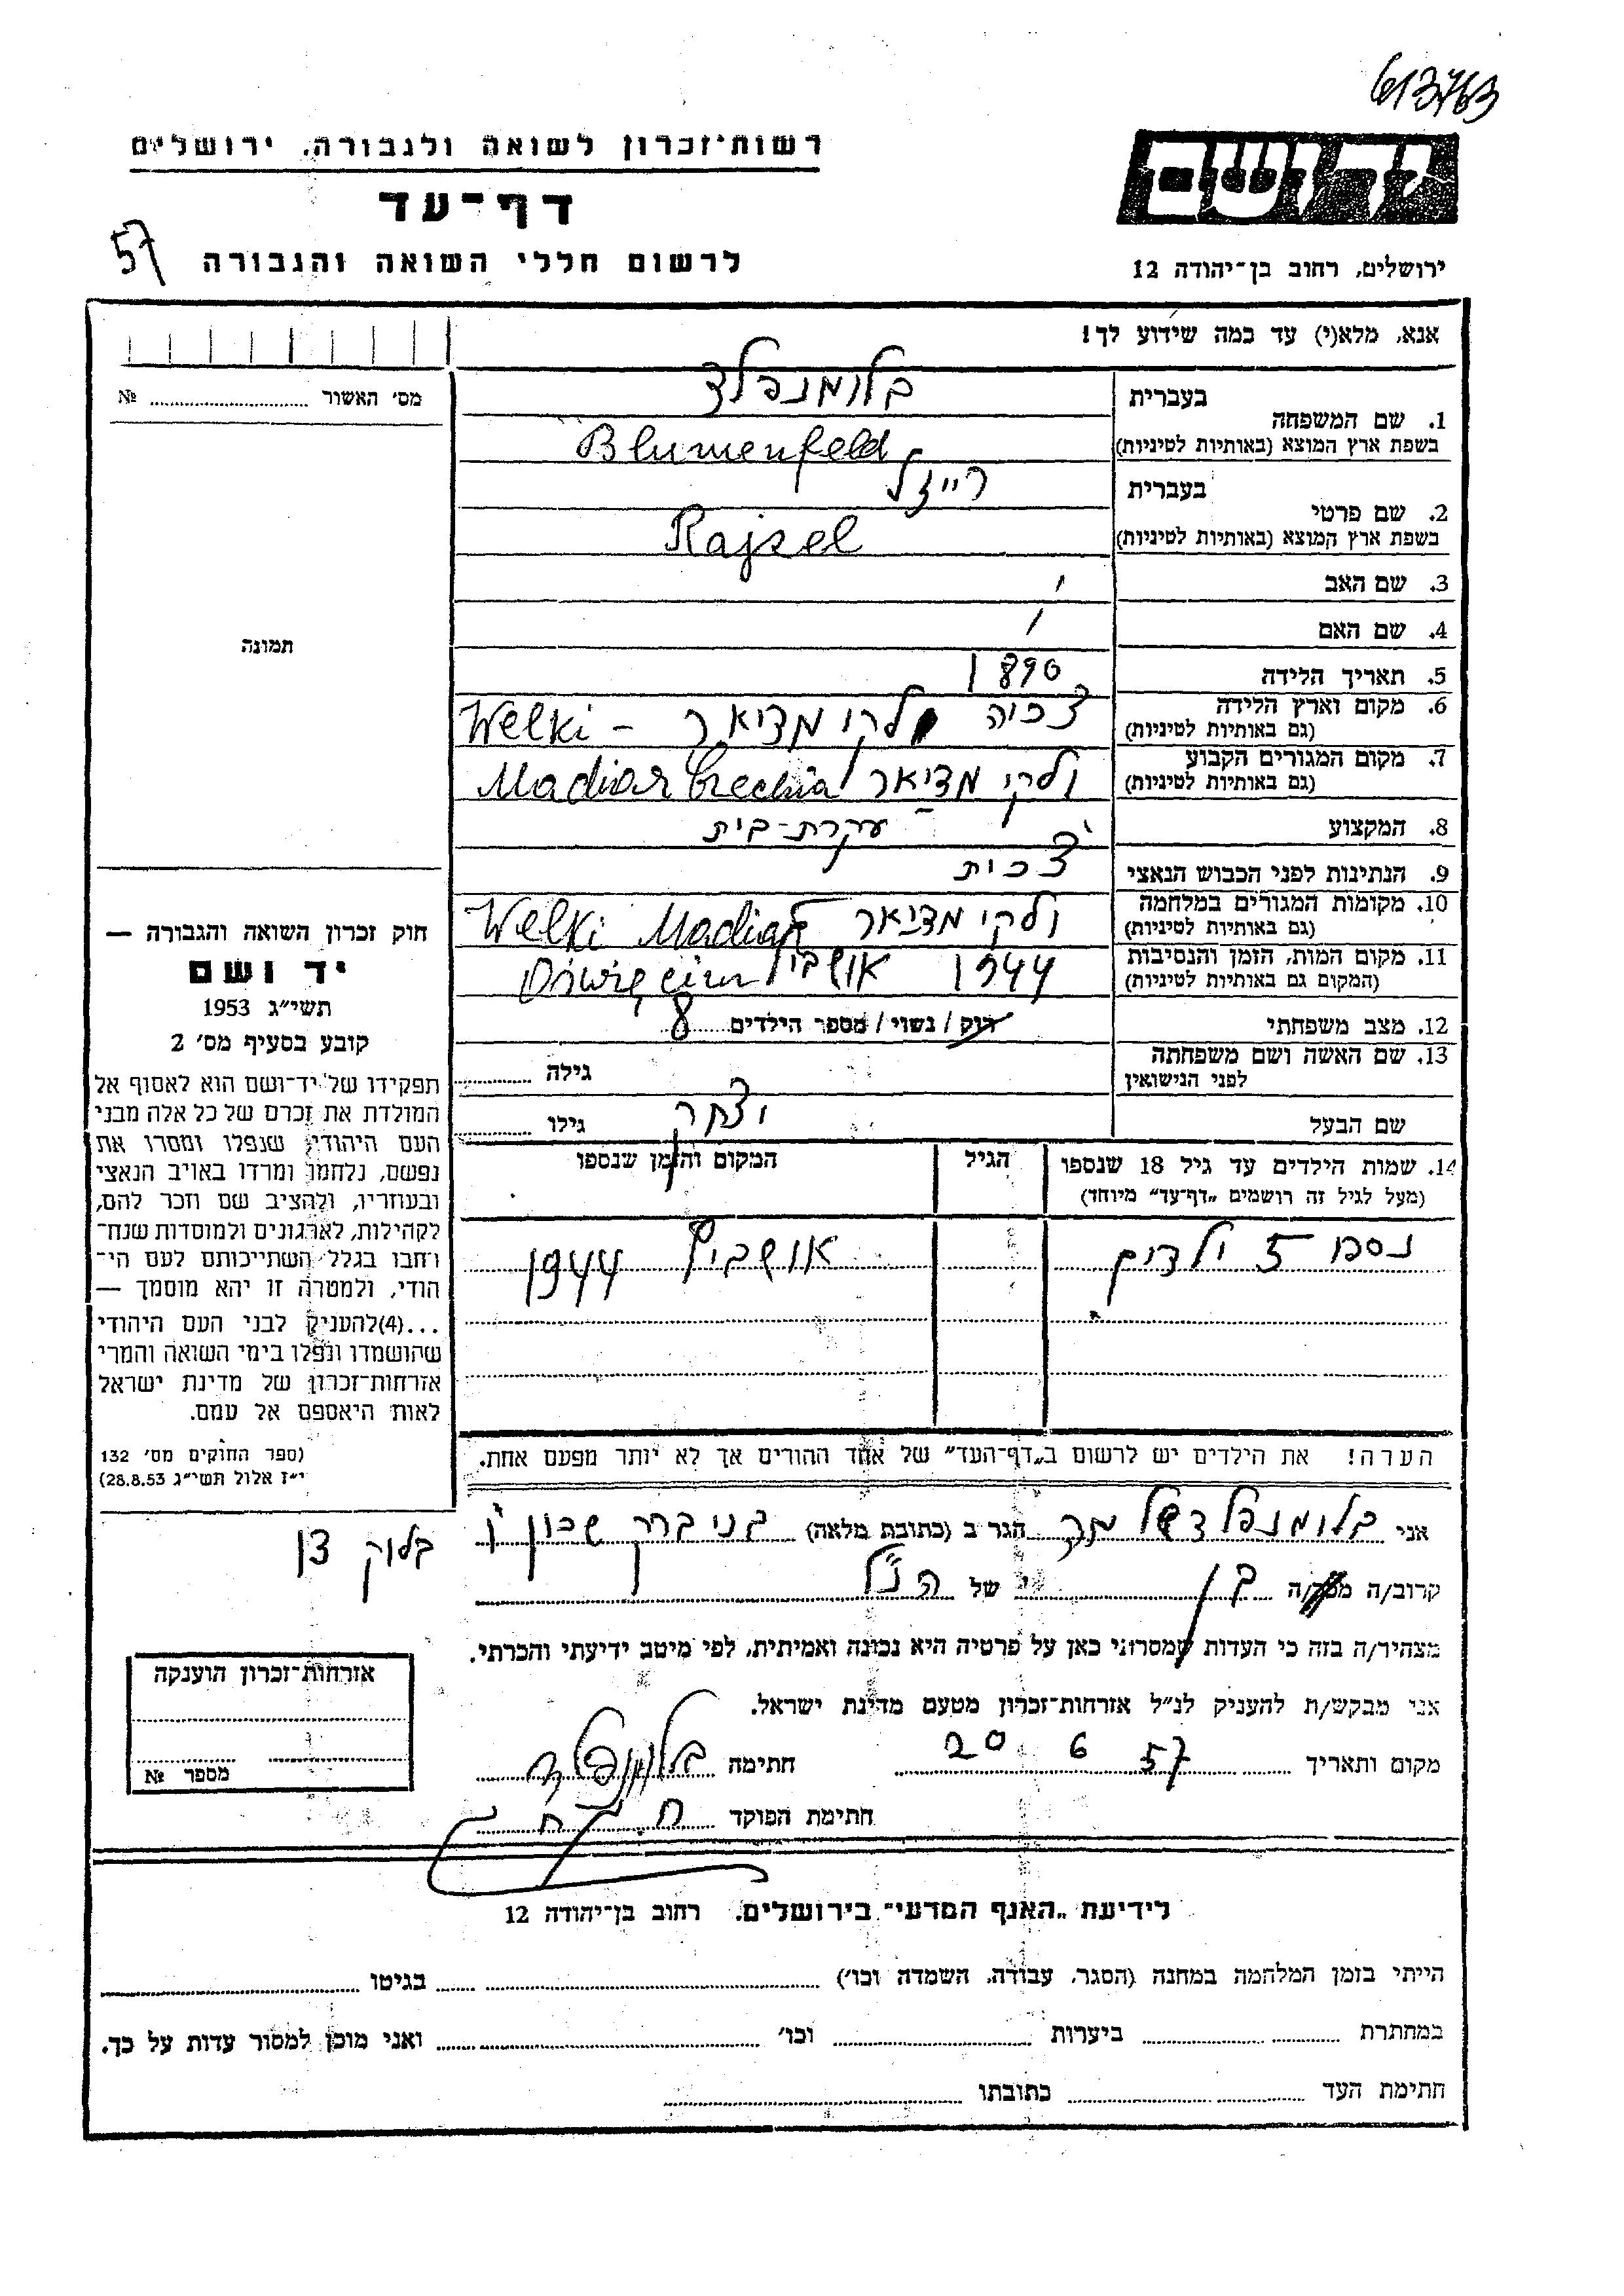 613763
רשות־זכרון לשואה ולגבורה, ירושלים
דף־עד
57
לרשום חללי השואה והגבורה
יד ושם
ירושלים, רחוב בן־יהודה 12
אנא, מלא(י) עד כמה שידוע לך!
מס׳ האשור № 
תמונה
1. שם המשפחה בעברית בלומנפלד
בשפת ארץ המוצא (באותיות לטיניות) Blumenfeld
2. שם פרטי בעברית רייזל
בשפת ארץ המוצא (באותיות לטיניות) Rajzel
3. שם האב
4. שם האם
5. תאריך הלידה 1890
6. מקום וארץ הלידה צ׳כיה ולקי מדיאר Welki -
(גם באותיות לטיניות)
7. מקום המגורים הקבוע ולקי מדיאר Madiar Czechia
(גם באותיות לטיניות)
8. המקצוע עקרת-בית
9. הנתינות לפני הכבוש הנאצי צ׳כית
10. מקומות המגורים במלחמה ולקי מדיאר Welki Madiar
(גם באותיות לטיניות)
11. מקום המות, הזמן והנסיבות 1944 אושביץ Oświęcim
(המקום גם באותיות לטיניות)
12. מצב משפחתי רוק / נשוי / מספר הילדים 8
13. שם האשה ושם משפחתה
לפני הנישואין
גילה
שם הבעל יצחק גילו
14. שמות הילדים עד גיל 18 שנספו
(מעל לגיל זה רושמים „דף־עד״ מיוחד)
הגיל
המקום והזמן שנספו
נספו 5 ילדים אושביץ 1944
הערה! את הילדים יש לרשום ב„דף־העד״ של אחד ההורים אך לא יותר מפעם אחת.
חוק זכרון השואה והגבורה —
יד ושם
תשי״ג 1953
קובע בסעיף מס׳ 2
תפקידו של יד־ושם הוא לאסוף אל
המולדת את זכרם של כל אלה מבני
העם היהודי, שנפלו ומסרו את
נפשם, נלחמו ומרדו באויב הנאצי
ובעוזריו, ולהציב שם וזכר להם,
לקהילות, לארגונים ולמוסדות שנח־
רחבו בגלל השתייכותם לעם הי־
הודי, ולמטרה זו יהא מוסמך —
...(4)להעניק לבני העם היהודי
שהושמדו ונפלו בימי השואה והמרי
אזרחות־זכרון של מדינת ישראל
לאות היאספם אל עמם.
(ספר החוקים מס׳ 132
י״ז אלול תשי״ג 28.8.53)
אני בלומנפלד הגר ב (כתובת מלאה) בני ברק שכון ו׳
בלוק
קרוב/ה בן של הנ״ל
מצהיר/ה בזה כי העדות שמסרתי כאן על פרטיה היא נכונה ואמיתית, לפי מיטב ידיעתי והכרתי.
אני מבקש/ת להעניק לנ״ל אזרחות־זכרון מטעם מדינת ישראל.
מקום ותאריך 57 6 20 חתימה בלומנפלד
חתימת הפוקד
אזרחות־זכרון הוענקה
מספר №
לידיעת „האגף המדעי״ בירושלים, רחוב בן־יהודה 12
הייתי בזמן המלחמה במחנה (הסגר, עבודה, השמדה וכו׳) בגיטו
במחתרת ביערות וכו׳ ואני מוכן למסור עדות על כך.
חתימת העד כתובתו